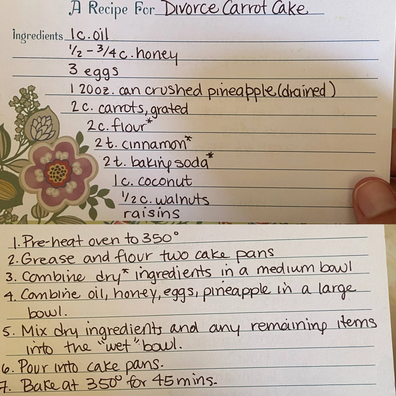 A Recipe For Divorce Carrot Cake
Ingredients 1 c. oil
1/2 - 3/4 c. honey
3 eggs
1 20oz. can crushed pineapple (drained)
2 c. carrots, grated
2 c. flour*
2 t. cinnamon*
2 t. baking soda*
1 c. coconut
1/2 c. walnuts
raisins
1. Pre-heat oven to 350°
2. Grease and flour two cake pans
3. Combine dry* ingredients in a medium bowl
4. Combine oil, honey, eggs, pineapple in a large
bowl.
5. Mix dry ingredients and any remaining items
into the "wet" bowl.
6. Pour into cake pans.
7. Bake at 350° for 45 mins.